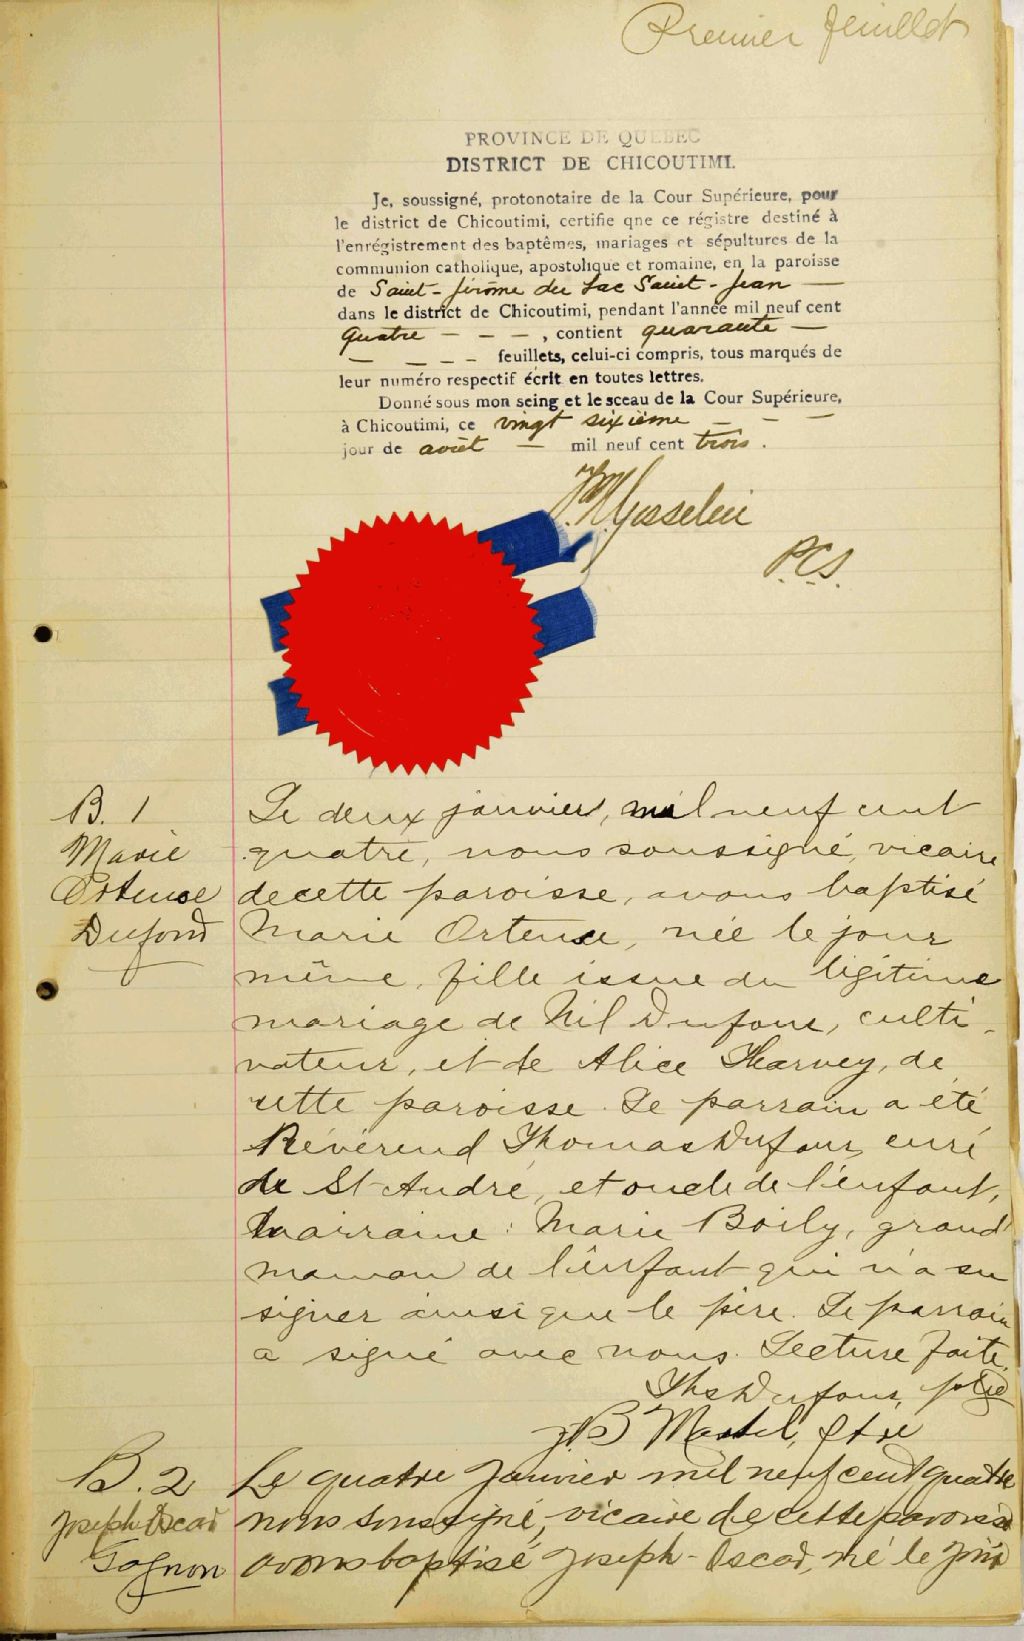 Premier feuillet
PROVINCE DE QUEBEC
DISTRICT DE CHICOUTIMI.
Je, soussigné, protonotaire de la Cour Supérieure, pour
le district de Chicoutimi, certifie qne ce régistre destiné à
l'enrégistrement des baptêmes, mariages et sépultures de la
communion catholique, apostolique et romaine, en la paroisse
de Saint-Jérôme du Lac Saint-Jean —
dans le district de Chicoutimi, pendant l'année mil neuf cent
quatre — — — , contient quarante —
— — — — feuillets, celui-ci compris, tous marqués de
leur numéro respectif écrit en toutes lettres.
Donné sous mon seing et le sceau de la Cour Supérieure,
à Chicoutimi, ce vingt sixième — — —
jour de août — mil neuf cent trois .
Gosselin
P.C.S.
B. 1
Marie
Ortense
Dufour
Le deux janvier, mil neuf cent
quatre, nous soussigné, vicaire
de cette paroisse, avons baptisé
Marie Ortense, née le jour
même, fille issue du légitime
mariage de Nil Dufour, culti-
vateur, et de Alice Harvey, de
cette paroisse. Le parrain a été
Révérend Thomas Dufour, curé
de St-André, et oncle de l'enfant,
Marraine : Marie Boily, grand'
maman de l'enfant qui n'a su
signer ainsi que le père. Le parrain
a signé avec nous. Lecture faite.
Ths Dufour, ptre
J.B. Martel, ptre
B. 2
Joseph Oscar
Gagnon
Le quatre Janvier mil neuf cent quatre
nous soussigné, vicaire de cette paroisse
avons baptisé Joseph-Oscar, né le jour